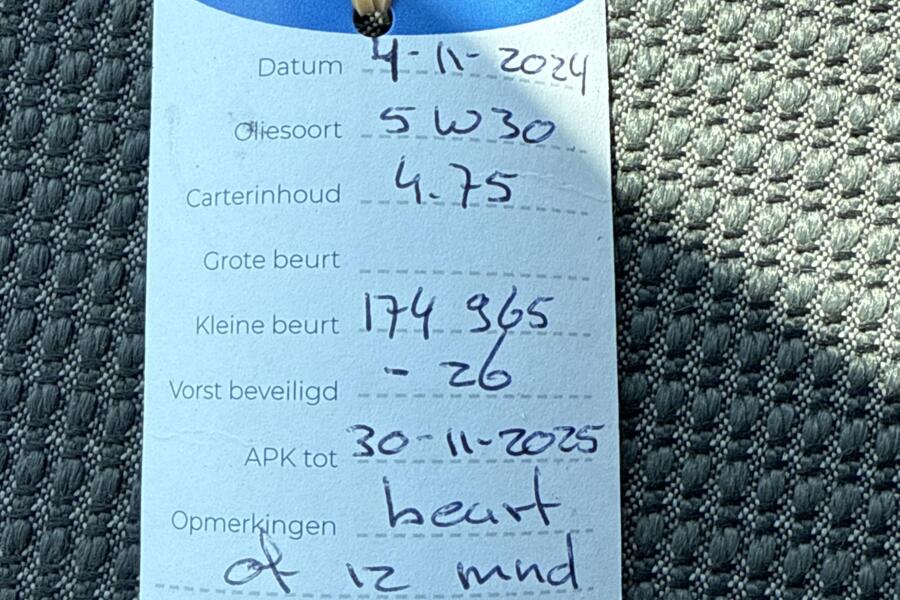 Datum 4-11-2024
Oliesoort 5W30
Carterinhoud 4.75
Grote beurt
Kleine beurt 174 965
Vorst beveiligd - 26
APK tot 30-11-2025
Opmerkingen beurt
of 12 mnd